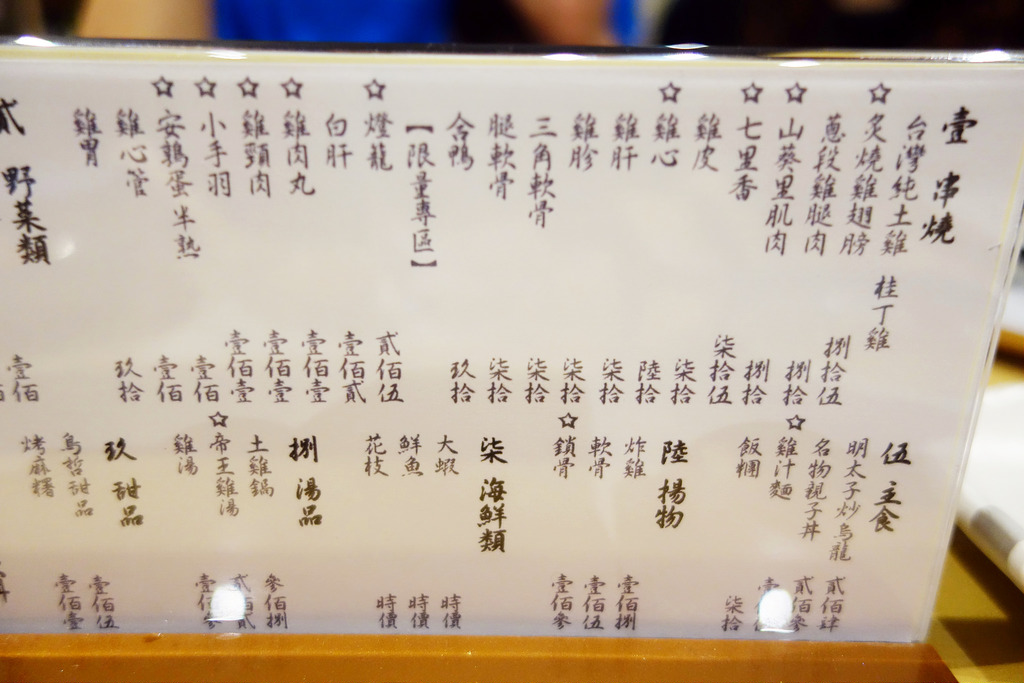 壹 串燒
台灣純土雞 桂丁雞
☆炙燒雞翅膀 捌拾伍
蔥段雞腿肉 捌拾
☆山葵里肌肉 捌拾
☆七里香 柒拾伍
雞皮 柒拾
☆雞心 陸拾
雞肝 柒拾
雞胗 柒拾
三角軟骨 柒拾
腿軟骨 柒拾
合鴨 玖拾
【限量專區】
☆燈籠 貳佰伍
白肝 壹佰貳
☆雞肉丸 壹佰壹
☆雞頸肉 壹佰壹
☆小手羽 壹佰壹
☆安鶉蛋半熟 壹佰
雞心管 壹佰
雞胃 玖拾
貳 野菜類
壹佰
伍 主食
明太子炒烏龍 貳佰肆
名物親子丼 貳佰參
☆雞汁麵
飯糰 柒拾
陸 揚物
炸雞 壹佰捌
軟骨 壹佰伍
☆鎖骨 壹佰參
柒 海鮮類
大蝦 時價
鮮魚 時價
花枝 時價
捌 湯品
土雞鍋 參佰捌
☆帝王雞湯 貳佰貳
雞湯 壹佰參
玖 甜品
烏哲甜品 壹佰伍
烤麻糬 壹佰壹